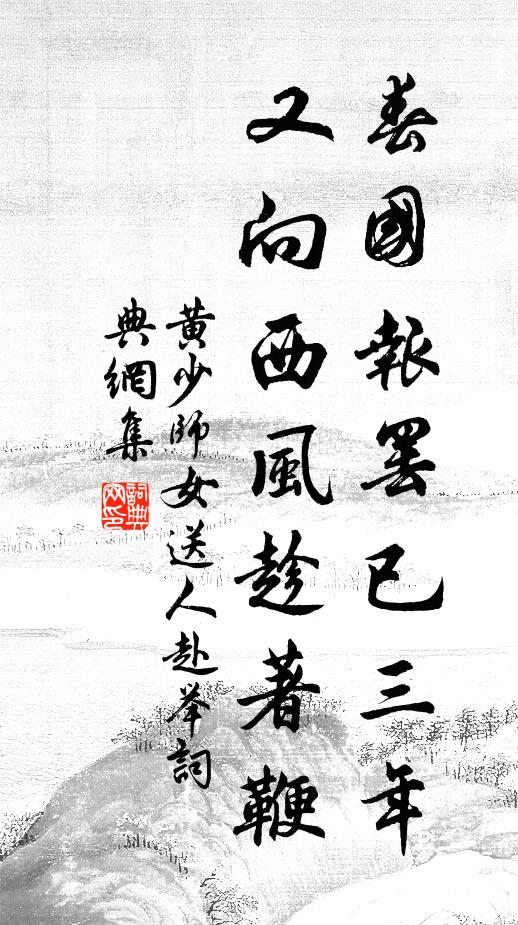 春國報罷已三年
又向西風趁著鞭
黃少師女送人赴举詞
典網集
詞典网印